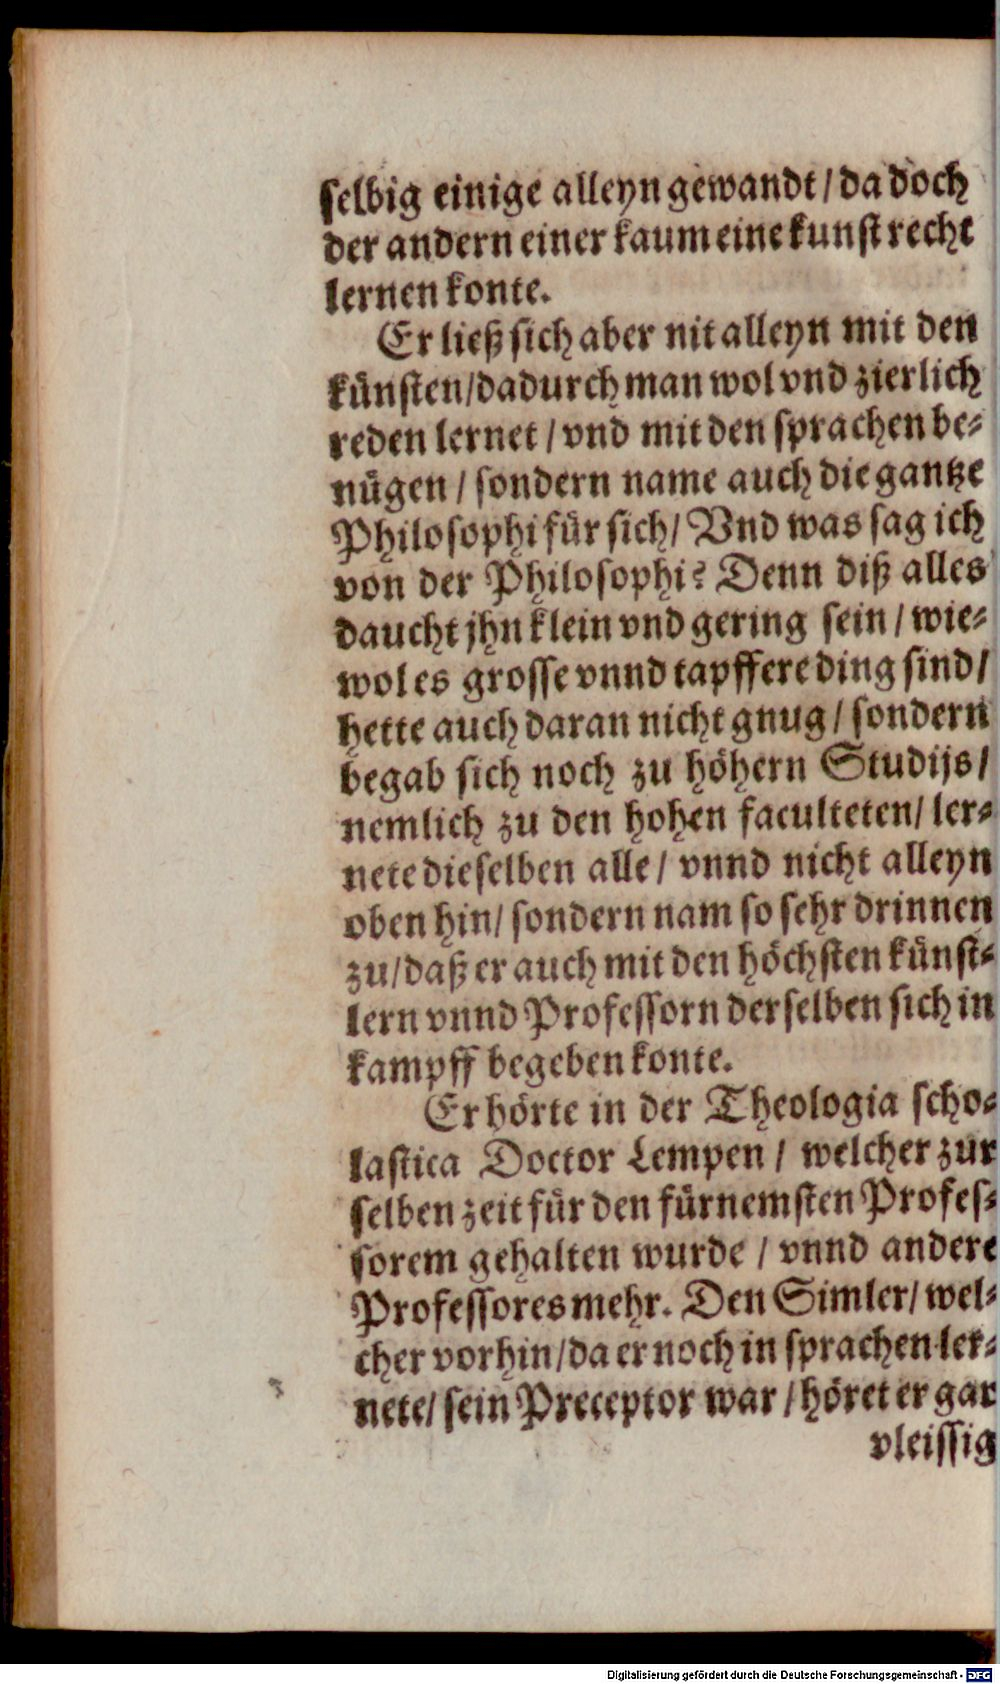 selbig einige alleyn gewandt / da doch
der andern einer kaum eine kunst recht
lernen konte.
Er ließ sich aber nit alleyn mit den
künsten / dadurch man wol vnd zierlich
reden lernet / vnd mit den sprachen be-
nügen / sondern name auch die gantze
Philosophi für sich / Vnd was sag ich
von der Philosophi? Denn diß alles
daucht jhn klein vnd gering sein / wie-
wol es grosse vnnd tapffere ding sind /
hette auch daran nicht gnug / sondern
begab sich noch zu höhern Studijs /
nemlich zu den hohen faculteten / ler-
nete dieselben alle / vnnd nicht alleyn
oben hin / sondern nam so sehr drinnen
zu / daß er auch mit den höchsten künst-
lern vnnd Professorn derselben sich in
kampff begeben konte.
Er hörte in der Theologia scho-
lastica Doctor Lempen / welcher zur
selben zeit für den fürnemsten Profes-
sorem gehalten wurde / vnnd andere
Professores mehr. Den Simler / wel-
cher vorhin / da er noch in sprachen ler-
nete / sein Preceptor war / höret er gar
vleissig
Digitalisierung gefördert durch die Deutsche Forschungsgemeinschaft - DFG